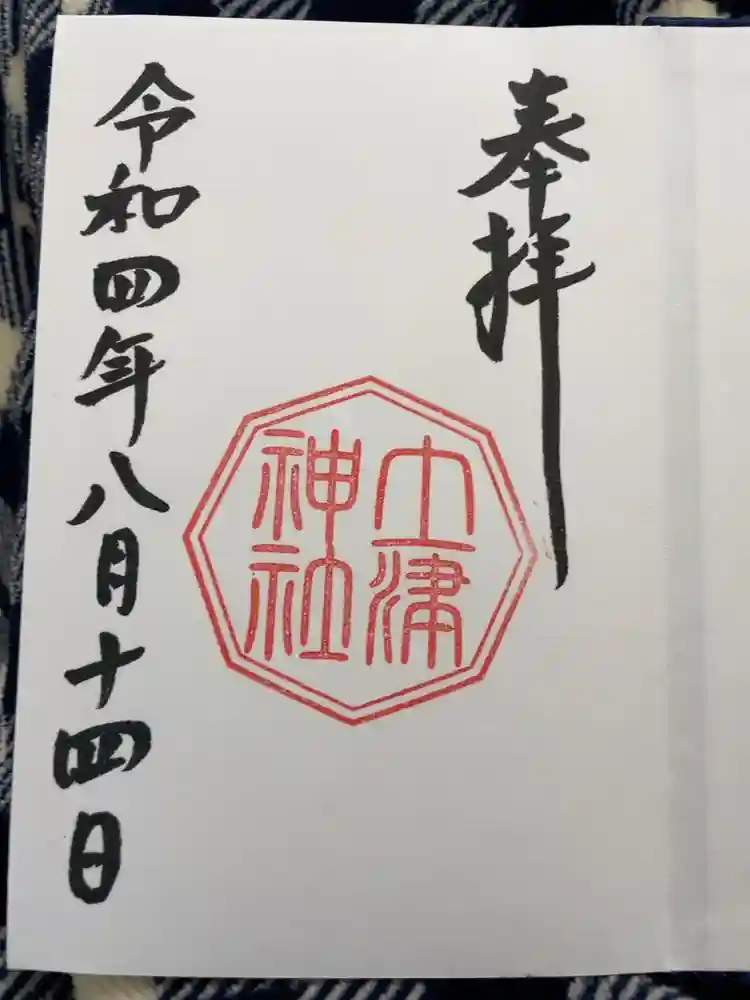 奉拝
土津
神社
令和四年八月十四日